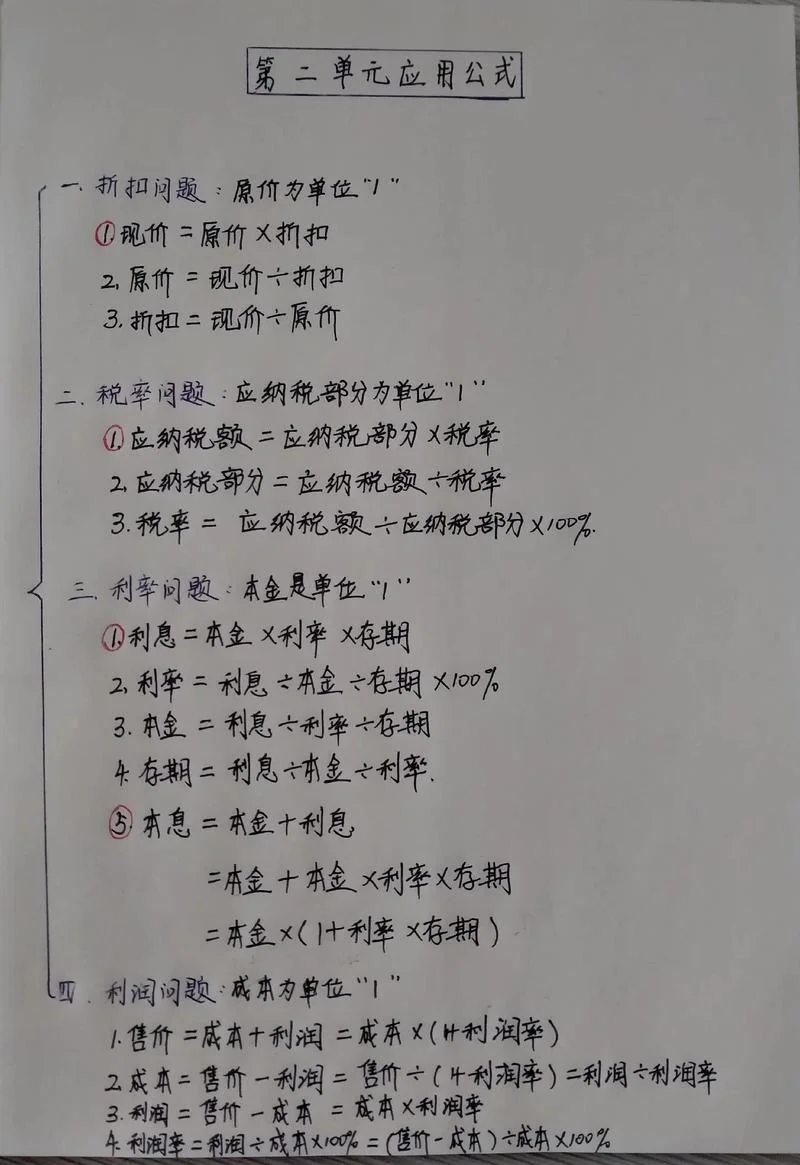 第二单元应用公式
一.折扣问题：原价为单位“1”
①.现价=原价×折扣
2.原价=现价÷折扣
3.折扣=现价÷原价
二.税率问题：应纳税部分为单位“1”
①.应纳税额=应纳税部分×税率
2.应纳税部分=应纳税额÷税率
3.税率=应纳税额÷应纳税部分×100%.
三.利率问题：本金是单位“1”
①.利息=本金×利率×存期
2.利率=利息÷本金÷存期×100%
3.本金=利息÷利率÷存期
4.存期=利息÷本金÷利率.
⑤本息=本金+利息
=本金+本金×利率×存期
=本金×(1+利率×存期)
四.利润问题：成本为单位“1”
1.售价=成本+利润=成本×(1+利润率)
2.成本=售价-利润=售价÷(1+利润率)=利润÷利润率
3.利润=售价-成本=成本×利润率
4.利润率=利润÷成本×100%=(售价-成本)÷成本×100%